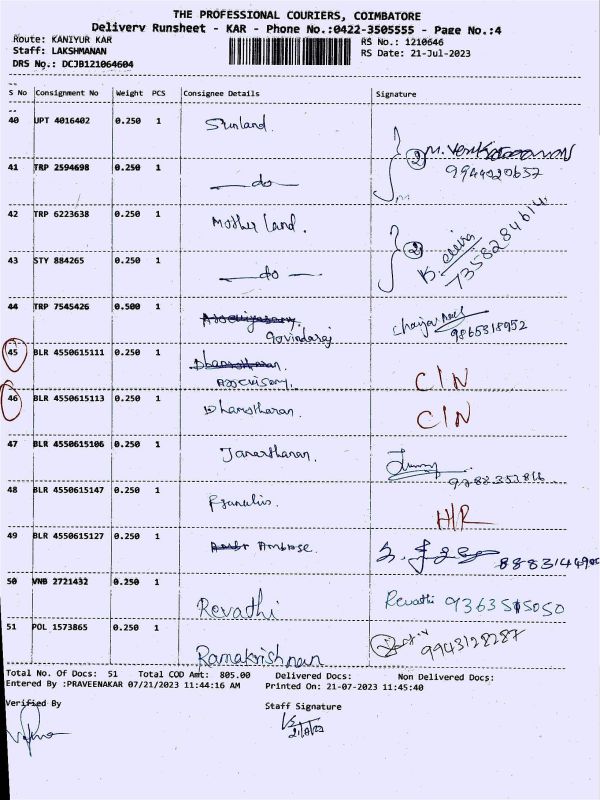 THE PROFESSIONAL COURIERS, COIMBATORE
Delivery Runsheet - KAR - Phone No.:0422-3505555 - Page No.:4
Route: KANIYUR KAR RS No.: 1210646
Staff: LAKSHMANAN RS Date: 21-Jul-2023
DRS No.: DCJB121064604
S No Consignment No Weight PCS Consignee Details Signature
40 UPT 4016402 0.250 1 Sunland
2
9944020657
41 TRP 2594698 0.250 1 do
42 TRP 6223638 0.250 1 Mother Land.
2
7358284614
43 STY 884265 0.250 1 do
44 TRP 7545426 0.500 1 Govindaraj
9865318952
45 BLR 4550615111 0.250 1 C/N
46 BLR 4550615113 0.250 1 Dhamotharan. C/N
47 BLR 4550615106 0.250 1 Janarthanan.
48 BLR 4550615147 0.250 1 H/R
49 BLR 4550615127 0.250 1 Ambrose.
50 VNB 2721432 0.250 1 Revathi Revathi 9363515050
51 POL 1573865 0.250 1 Ramakrishnan 9943128287
Total No. Of Docs: 51 Total COD Amt: 805.00 Delivered Docs: Non Delivered Docs:
Entered By :PRAVEENAKAR 07/21/2023 11:44:16 AM Printed On: 21-07-2023 11:45:40
Verified By Staff Signature